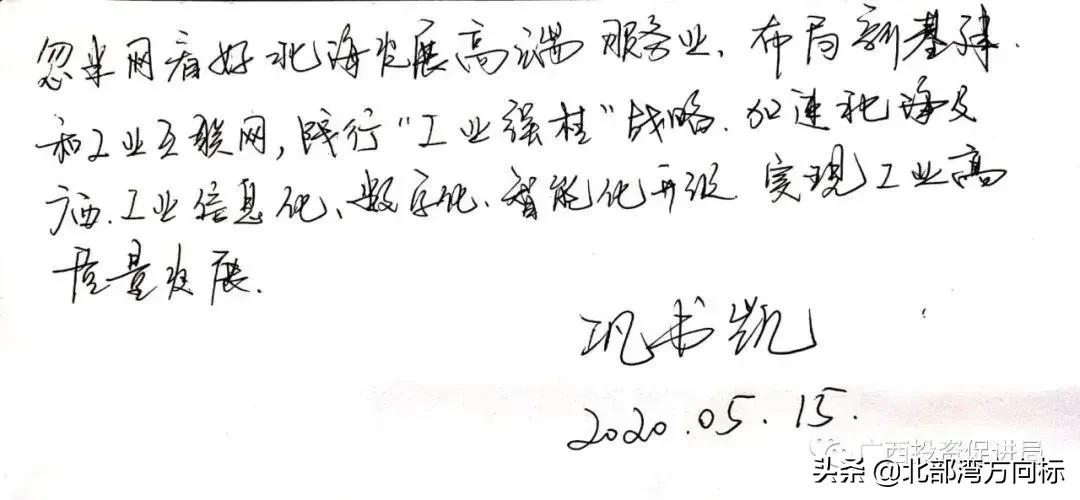 忽米网看好北海发展高端服务业，布局新基建．
和工业互联网，践行“工业强桂”战略．加速北海及
广西．工业信息化、数字化、智能化升级．实现工业高
质量发展．
巩书凯
2020.05.15.
广西投资促进局
头条@北部湾方向标